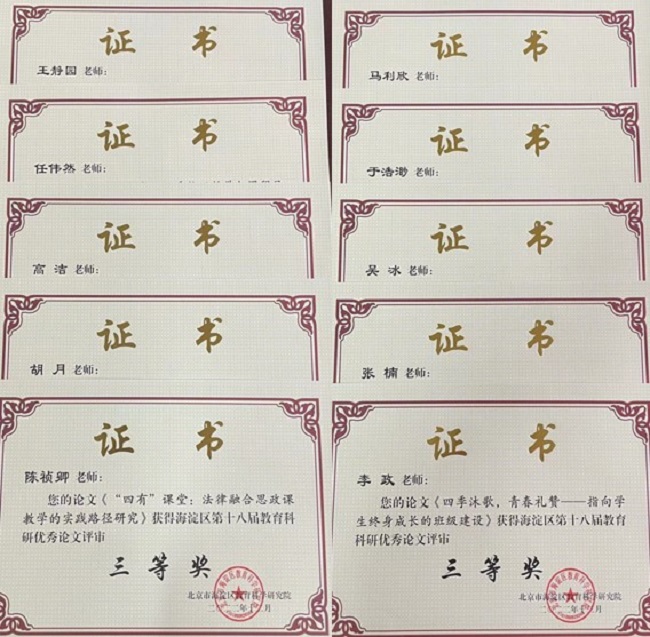 证 书
王静园 老师:
证 书
任伟然 老师:
证 书
高 洁 老师:
证 书
胡 月 老师:
证 书
陈祯卿 老师:
您的论文《“四有”课堂:法律融合思政课
教学的实践路径研究》获得海淀区第十八届教育科
研优秀论文评审
三 等 奖
北京市海淀区教育科学研究院
证 书
马利欣 老师:
证 书
老师:
证 书
吴 冰 老师:
证 书
张 楠 老师:
证 书
李 政 老师:
您的论文《四季沐歌,青春礼赞——指向学
生终身成长的班级建设》获得海淀区第十八届教育
科研优秀论文评审
三 等 奖
北京市海淀区教育科学研究院